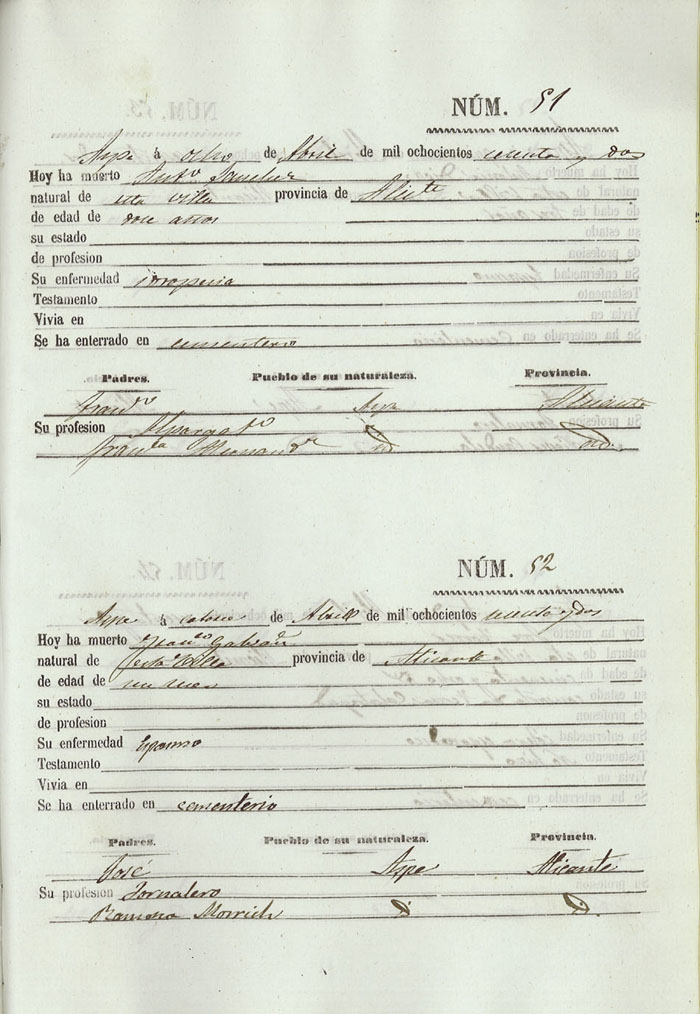 NÚM. 51
Aspe á ocho de Abril de mil ochocientos sesenta y dos
Hoy ha muerto Antº Sanchez
natural de esta villa provincia de Alicte
de edad de doce años
su estado
de profesion
Su enfermedad idropesia
Testamento
Vivia en
Se ha enterrado en cementerio
Padres. Pueblo de su naturaleza. Provincia.
Aspe Alicante
Su profesion Alpargatº id
id id.
NÚM. 52
Aspe á catorce de Abril de mil ochocientos sesenta y dos
Hoy ha muerto
natural de esta Villa provincia de Alicante
de edad de un mes
su estado
de profesion
Su enfermedad Espasmo
Testamento
Vivia en
Se ha enterrado en cementerio
Padres. Pueblo de su naturaleza. Provincia.
José Aspe Alicante
Su profesion Jornalero
Ramona